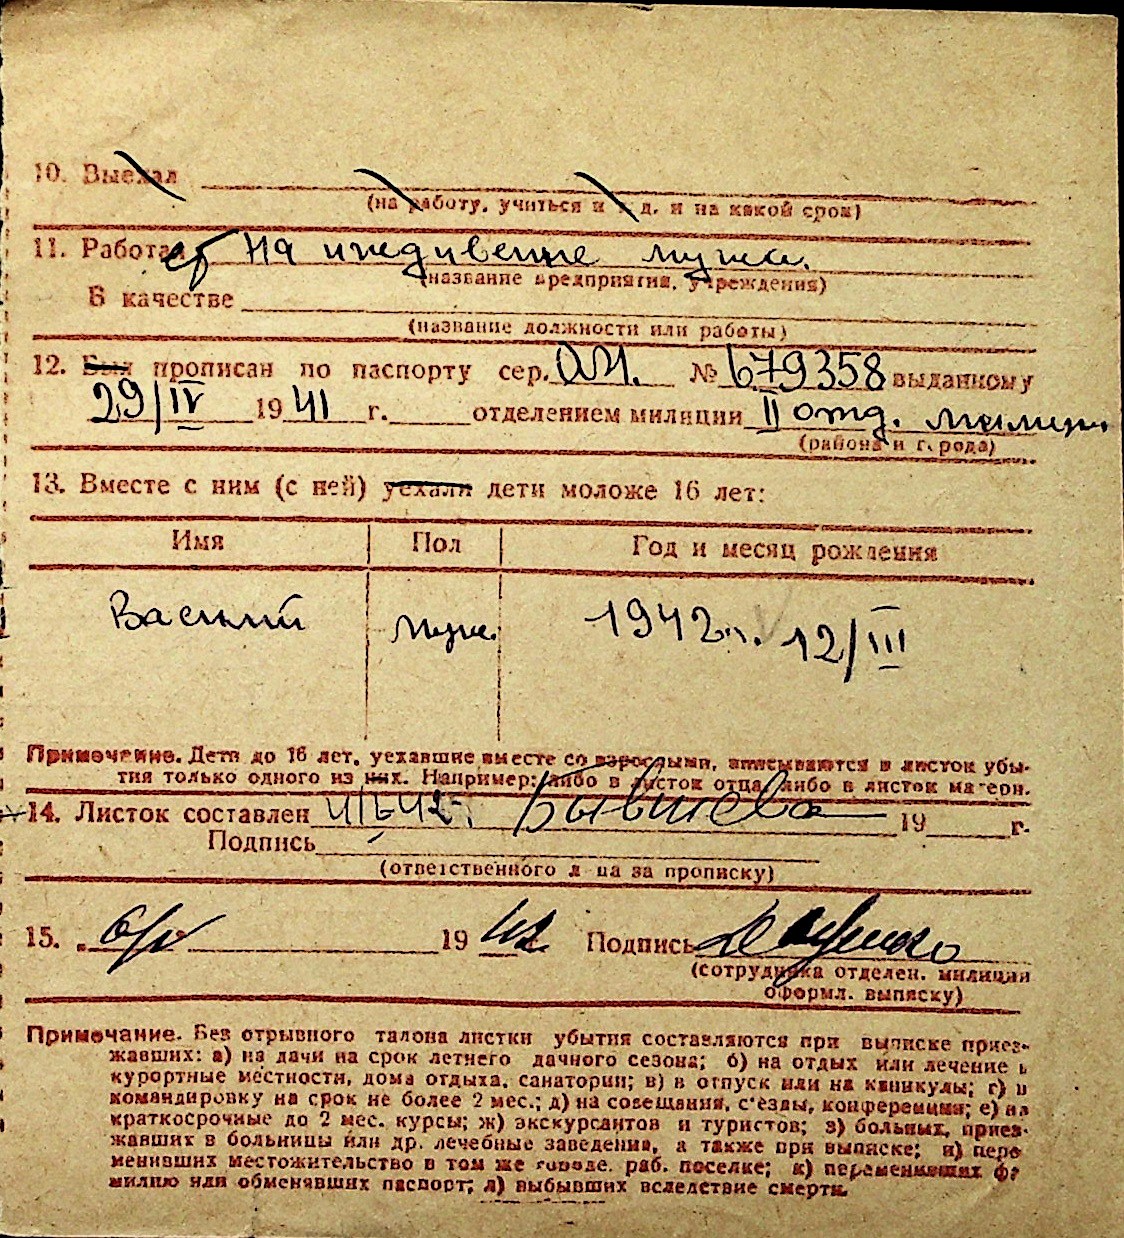 10. Выехал
(на работу, учиться и т. д. и на какой срок)
11. Работает на иждивение мужа.
(название предприятия, учреждения)
В качестве
(название должности или работы)
12. Был прописан по паспорту сер. ОМ. № 679358 выданному
29/IV 1941 г. отделением милиции II отд. милиции
(района и города)
13. Вместе с ним (с ней) уехали дети моложе 16 лет:
Имя Пол Год и месяц рождения
Василий муж. 1942 г. 12/III
Примечание. Дети до 16 лет, уехавшие вместе со взрослыми, вписываются в листок убы-
тия только одного из них. Например: либо в листок отца, либо в листок матери.
14. Листок составлен 4/V 42 г. Бывшева 19 г.
Подпись
(ответственного лица за прописку)
15. 6/V 1942 Подпись
(сотрудника отделен. милиции
оформл. выписку)
Примечание. Без отрывного талона листки убытия составляются при выписке приез-
жавших: а) на дачи на срок летнего дачного сезона; б) на отдых или лечение в
курортные местности, дома отдыха, санатории; в) в отпуск или на каникулы; г) в
командировку на срок не более 2 мес.; д) на совещания, с'езды, конференции; е) на
краткосрочные до 2 мес. курсы; ж) экскурсантов и туристов; з) больных, приез-
жавших в больницы или др. лечебные заведения, а также при выписке; и) пере
менивших местожительство в том же городе, раб. поселке; к) переменивших фа
милию или обменявших паспорт; л) выбывших вследствие смерти.